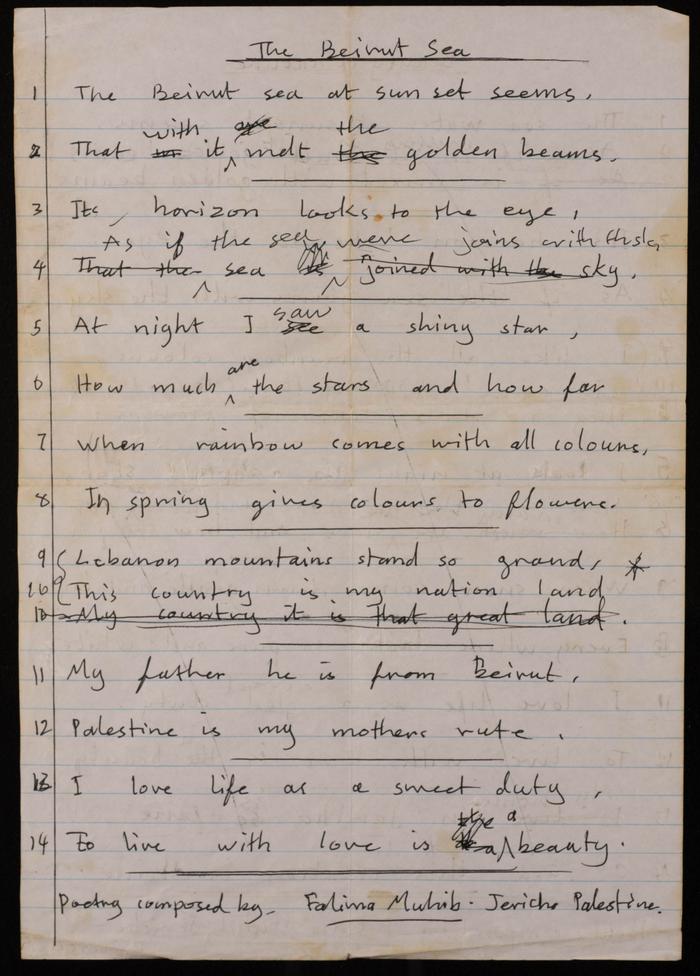 The Beirut Sea
1 The Beirut sea at sun set seems,
with are the
2 That it melt the golden beams.
3 Its, horizon looks to the eye,
As if the sea, were joins with the sky
4 That the sea joined with the sky.
saw
5 At night I see a shiny star,
are
6 How much the stars and how far
7 When rainbow comes with all colours,
8 In spring gives colours to flowers.
9 Lebanon mountains stand so grand,
10 This country is my nation land
10 My country it is that great land.
11 My father he is from Beirut,
12 Palestine is my mothers rute.
13 I love life as a sweet duty,
the a
14 To live with love is a beauty.
Poetry composed by. Fatima Muhib. Jericho Palestine.